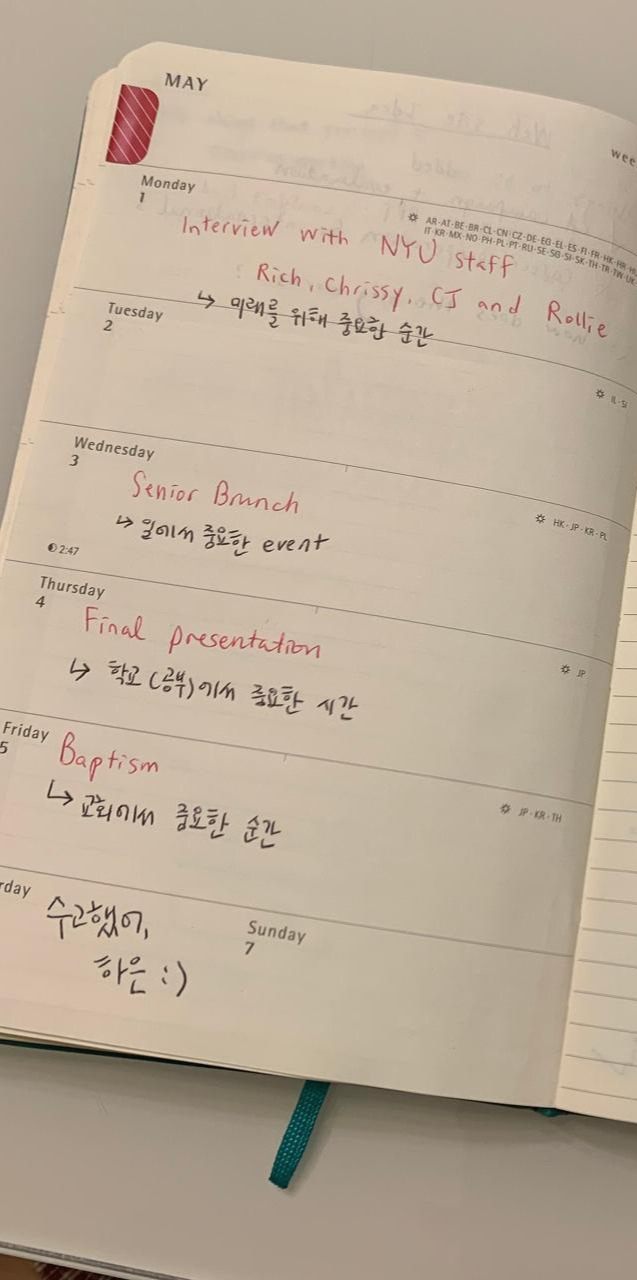 MAY
wee
Monday
1
AR·AT·BE·BR·CL·CN·CZ·DE·EG·EL·ES·FI·FR·HK·HR·HU
IT·KR·MX·NO·PH·PL·PT·RU·SE·SG·SI·SK·TH·TR·TW·UK
Interview with NYU staff
Rich, Chrissy, CJ and Rollie
↳ 미래를 위해 중요한 순간
Tuesday
2
IL·SI
Wednesday
3
HK·JP·KR·PL
Senior Brunch
↳ 일에서 중요한 event
2:47
Thursday
4
JP
Final presentation
↳ 학교(공부)에서 중요한 시간
Friday
5
JP·KR·TH
Baptism
↳ 교회에서 중요한 순간
rday
수고했어,
하은 :)
Sunday
7